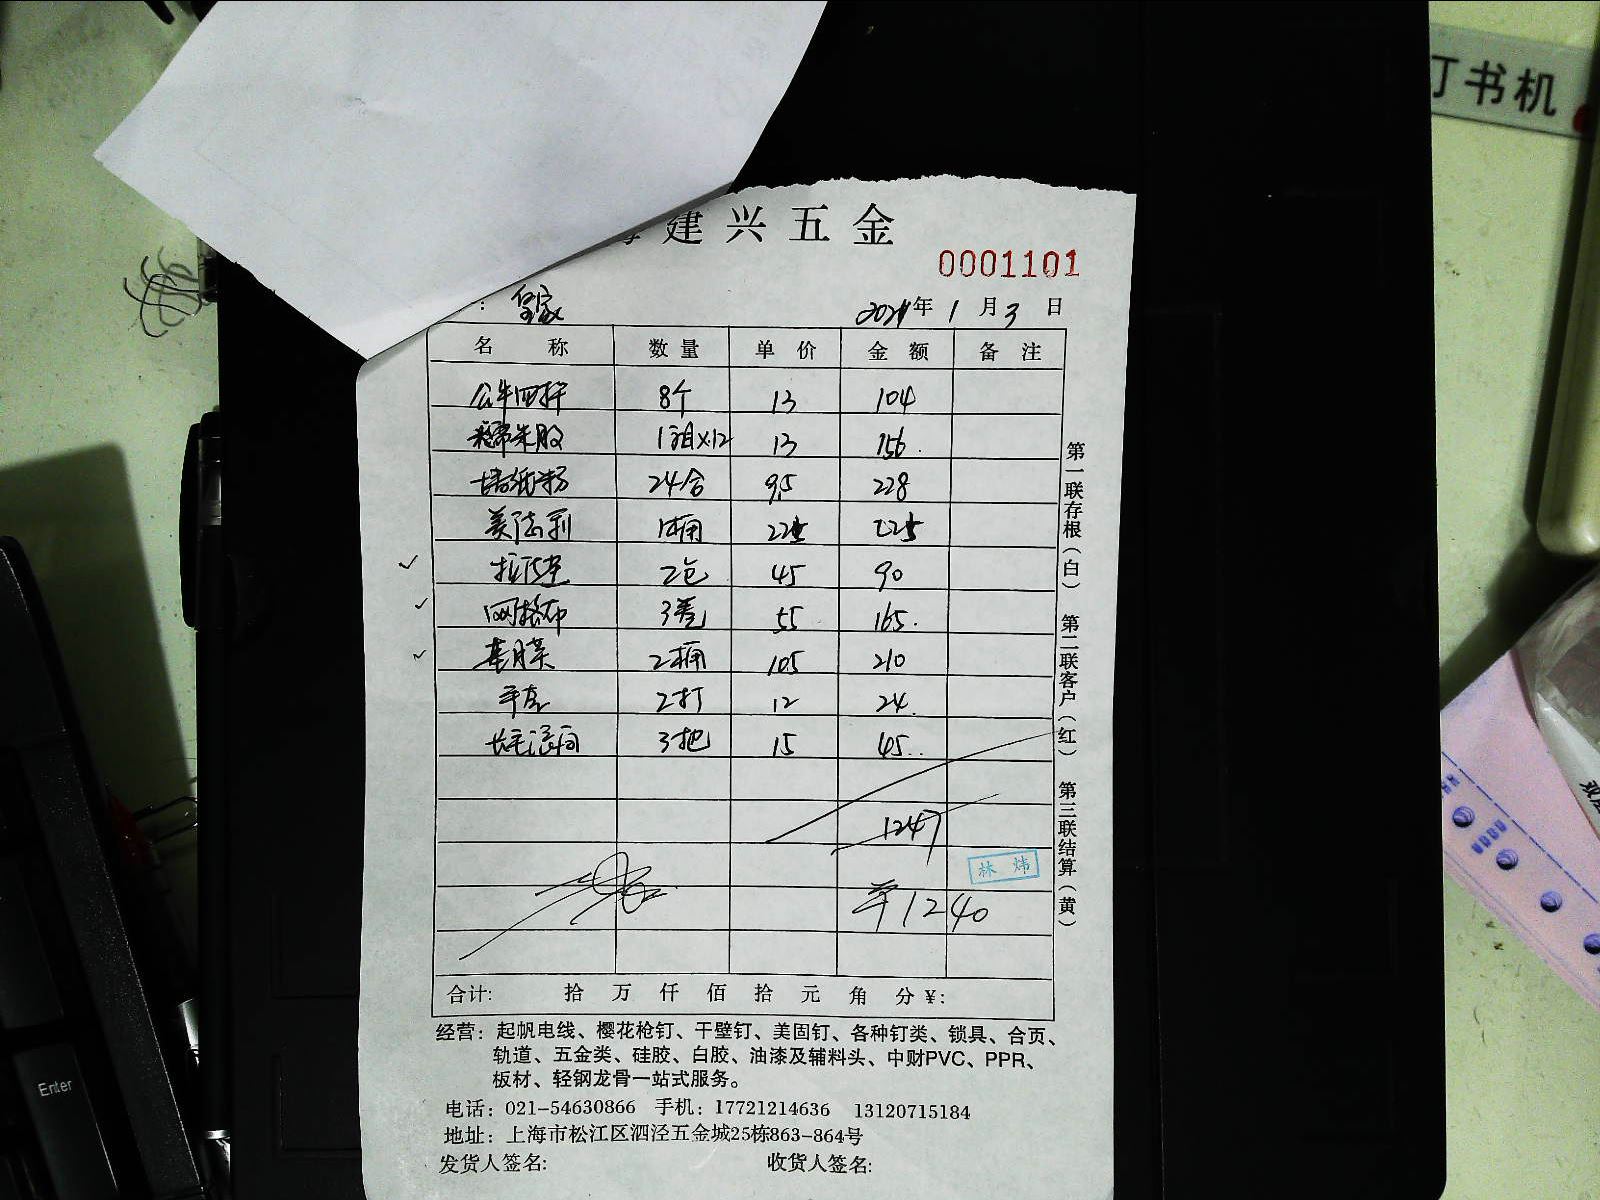 订书机
建兴五金
0001101
: 皇家 2021年1月3日
名称 数量 单价 金额 备注
公牛四拼 8个 13 104
1组×12 13 156.
墙纸粉 24合 9.5 228
美法利 1桶 225 225
拉法基 2包 45 90
网格布 3卷 55 165.
基膜 2桶 105 210
2打 12 24.
3把 15 45..
1247
林炜
1240
合计: 拾 万 仟 佰 拾 元 角 分 ¥:
第一联存根(白) 第二联客户(红) 第三联结算(黄)
经营: 起帆电线、樱花枪钉、干壁钉、美固钉、各种钉类、锁具、合页、
轨道、五金类、硅胶、白胶、油漆及辅料头、中财PVC、PPR、
板材、轻钢龙骨一站式服务。
电话: 021-54630866 手机: 17721214636 13120715184
地址: 上海市松江区泗泾五金城25栋863-864号
发货人签名: 收货人签名:
Enter